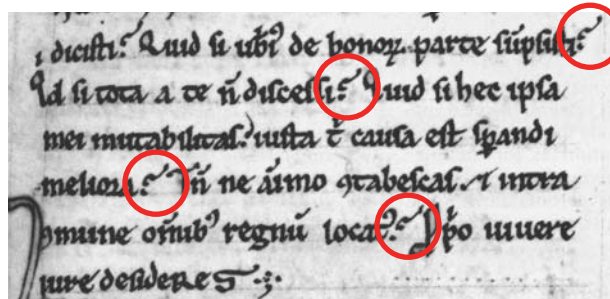 i dicisti? Quid si ub̄i⁹ de bonoꝝ parte sūpsisti?
Qd si tota a te n̄ discessi? Quid si hec ipsa
mei mutabilitas? iusta t̄ causa est sp̄andi
meliora? Tn̄ ne aīmo ꝯtabescas. ⁊ intra
ꝯmune om̄ib⁹ regnū locat⁹? ꝓpo uiuere
iure desideres